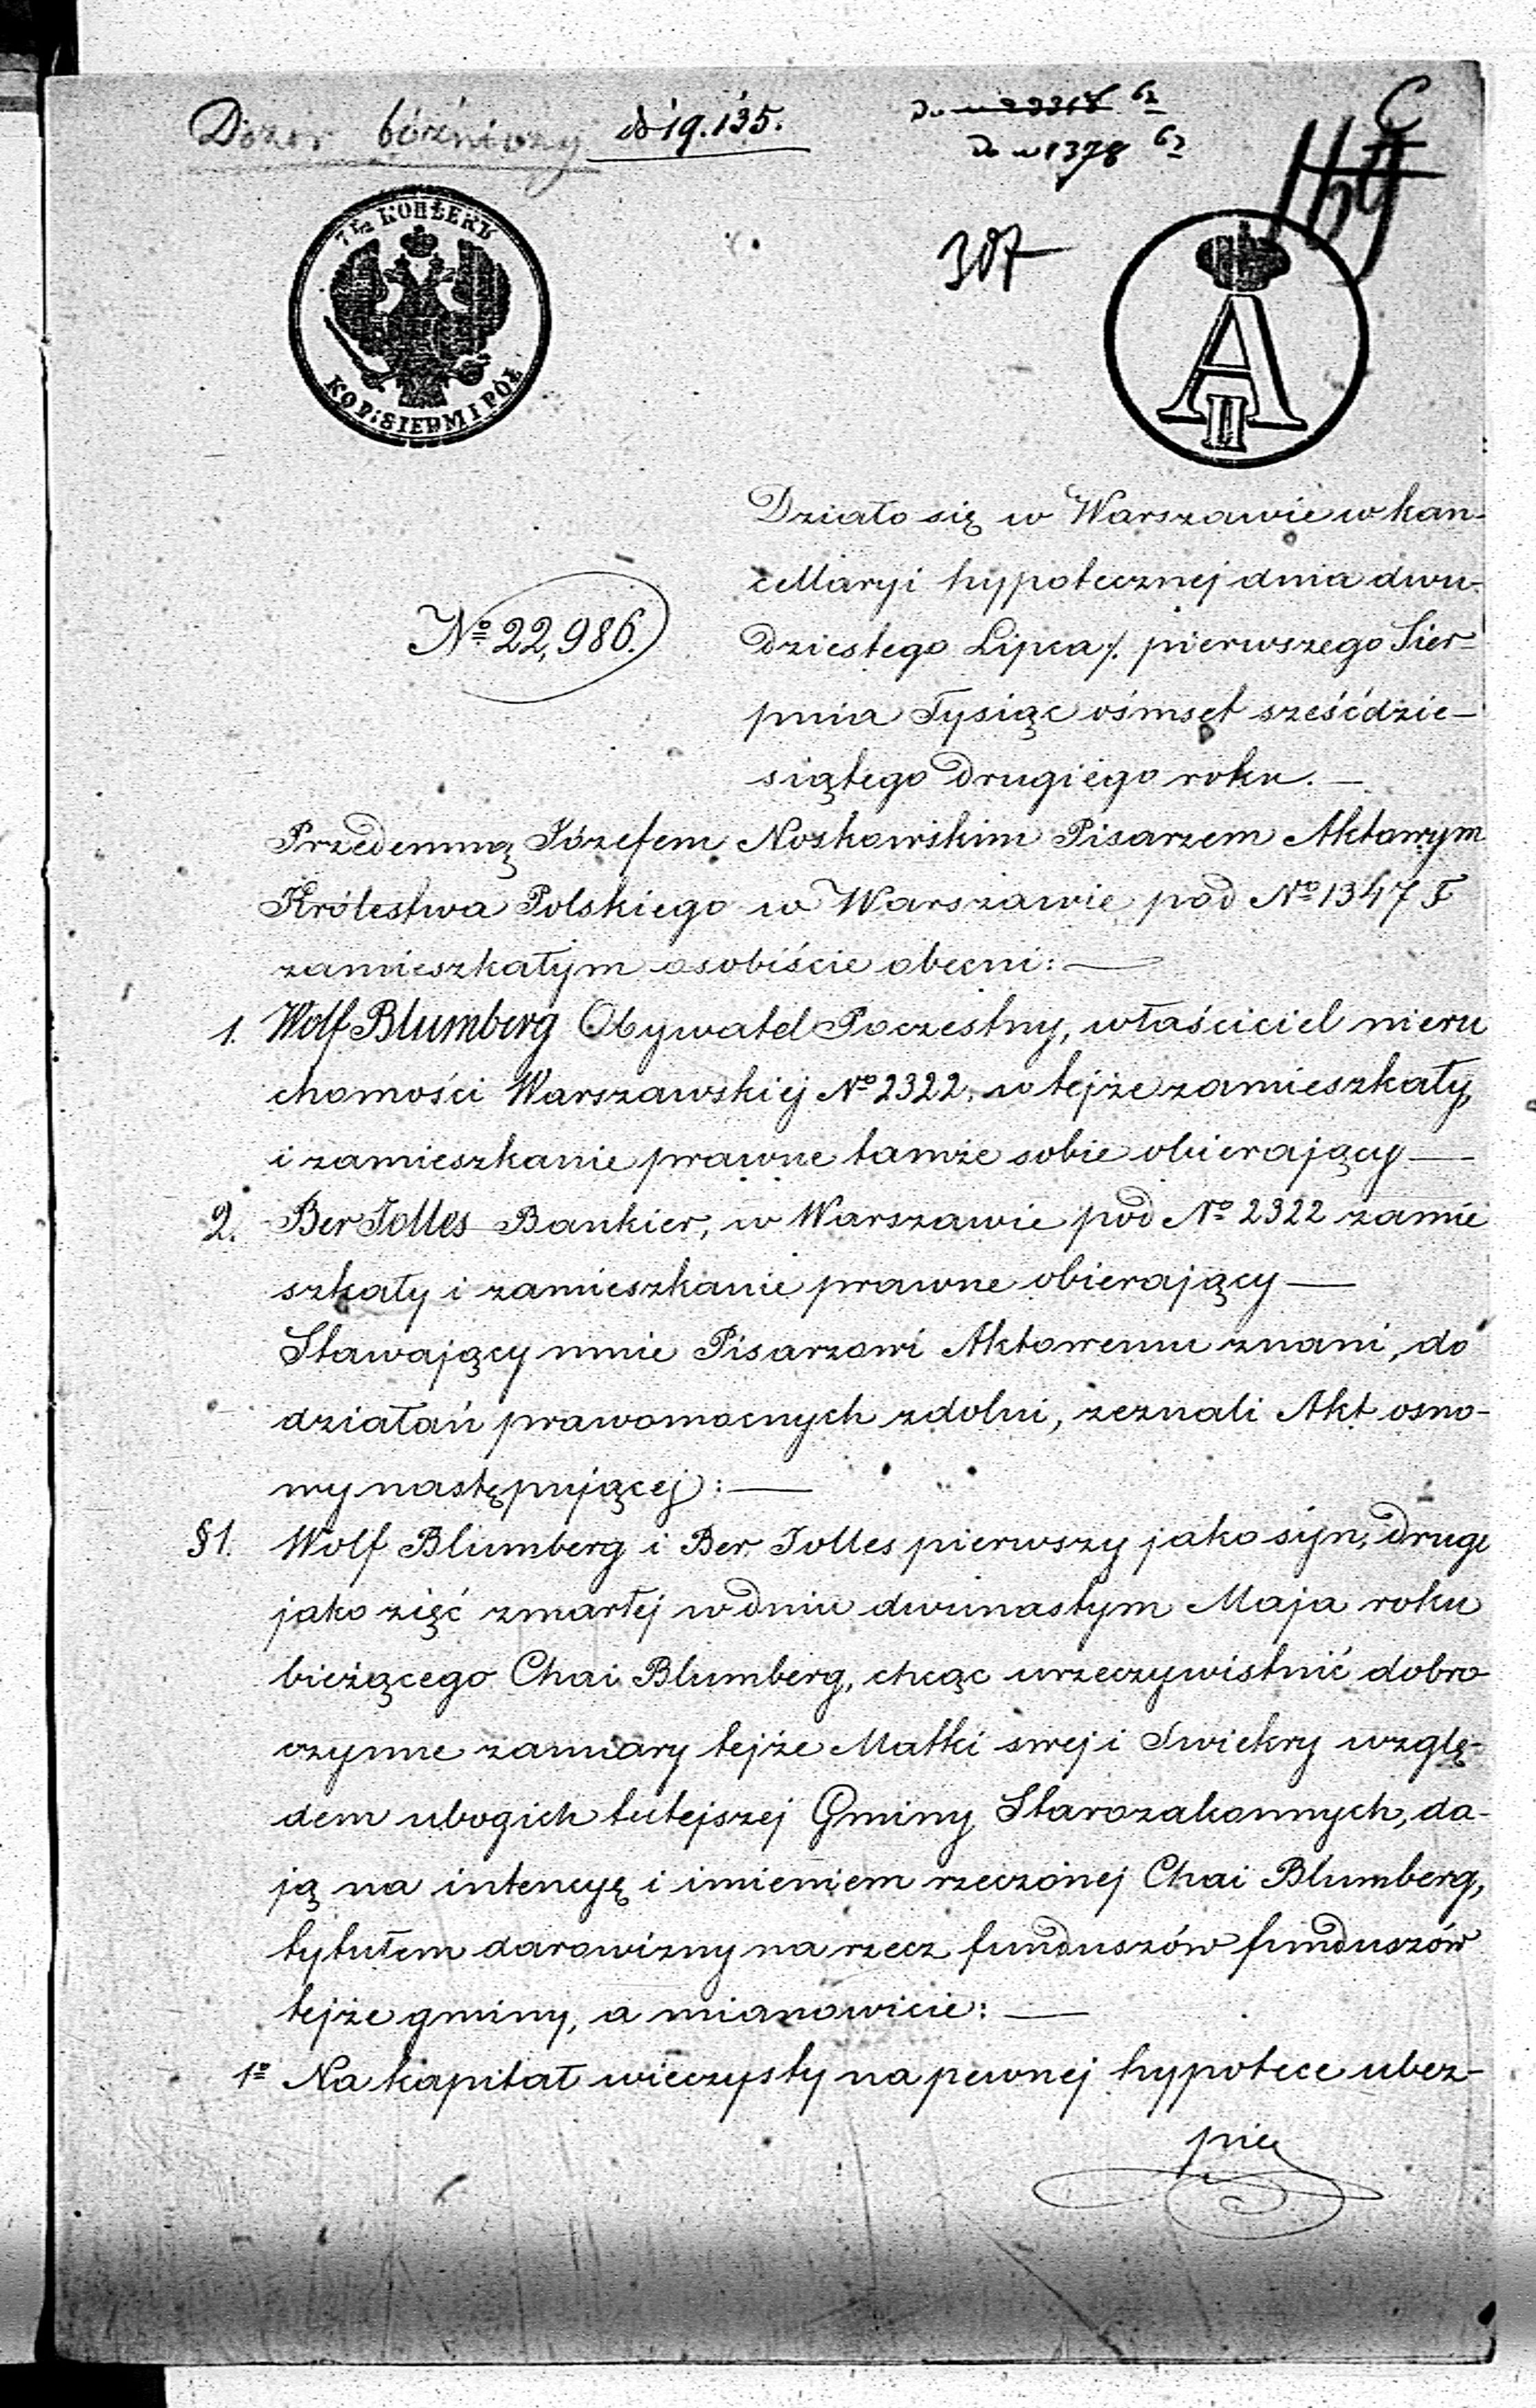 Dozor bóźniczy do 19.135.
do n 1378 62
307
7 1/2 КОПѢЕКЪ
KOP: SIEDM I PÓŁ
A II
Działo się w Warszawie w kan-
cellaryi hypotecznej dnia dwu-
№ 22,986.
dziestego Lipca /. pierwszego Sier-
pnia Tysiąc ośmset sześćdzie-
siątego drugiego roku. —
Przedemną Józefem Noskowskim Pisarzem Aktowym
Królestwa Polskiego w Warszawie pod № 1347 F
zamieszkałym osobiście obecni: —
1. Wolf Blumberg Obywatel Poczestny, właściciel nieru
chomości Warszawskiej № 2322. w tejże zamieszkały,
i zamieszkanie prawne tamże sobie obierający —
2. Ber Jolles Bankier, w Warszawie pod № 2322 zamie
szkały i zamieszkanie prawne obierający —
Stawający mnie Pisarzowi Aktowemu znani, do
działań prawomocnych zdolni, zeznali Akt osno-
wy następującej: —
§1. Wolf Blumberg i Ber Jolles pierwszy jako syn, drugi
jako zięć zmarłej w dniu dwunastym Maja roku
bieżącego Chai Blumberg, chcąc urzeczywistnić dobro
czynne zamiary tejże Matki swej i Świekry wzglę-
dem ubogich tutejszej Gminy Starozakonnych, da-
ją na intencyę i imieniem rzeczonej Chai Blumberg,
tytułem darowizny na rzecz funduszów funduszów
tejże gminy, a mianowicie: —
1º Na kapitał wieczysty na pewnej hypotece ubez-
piec